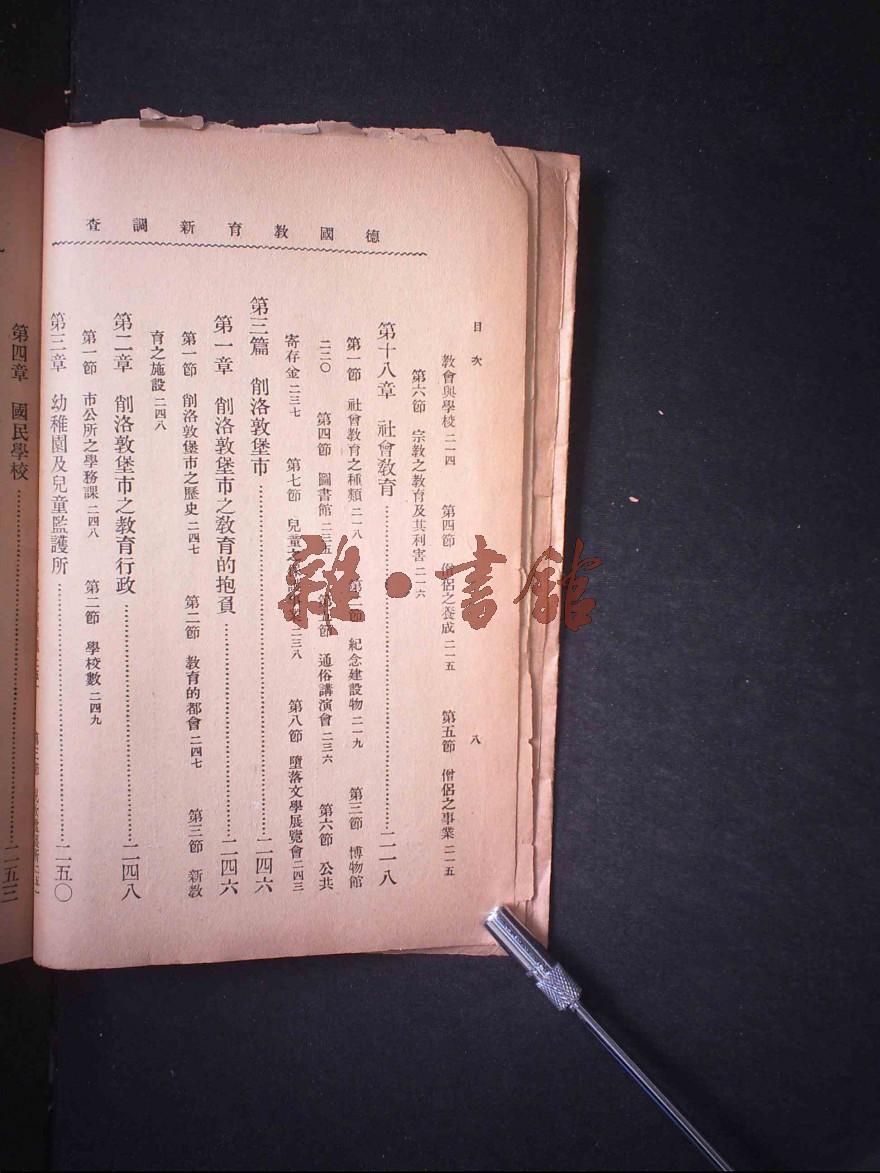 德國教育新調查
目次
八
教會與學校二一四 第四節 僧侶之養成二一五 第五節 僧侶之事業二一五
第六節 宗教之教育及其利害二一六
第十八章 社會教育……二一八
第一節 社會教育之種類二一八 第二節 紀念建設物二一九 第三節 博物館
二二〇 第四節 圖書館二三五 第五節 通俗講演會二三六 第六節 公共
寄存金二三七 第七節 兒童之 二三八 第八節 墮落文學展覽會二四三
第三篇 削洛敦堡市……二四六
第一章 削洛敦堡市之教育的抱負……二四六
第一節 削洛敦堡市之歷史二四七 第二節 教育的都會二四七 第三節 新教
育之施設二四八
第二章 削洛敦堡市之教育行政……二四八
第一節 市公所之學務課二四八 第二節 學校數二四九
第三章 幼稚園及兒童監護所……二五〇
第四章 國民學校……二五三
雜·書館